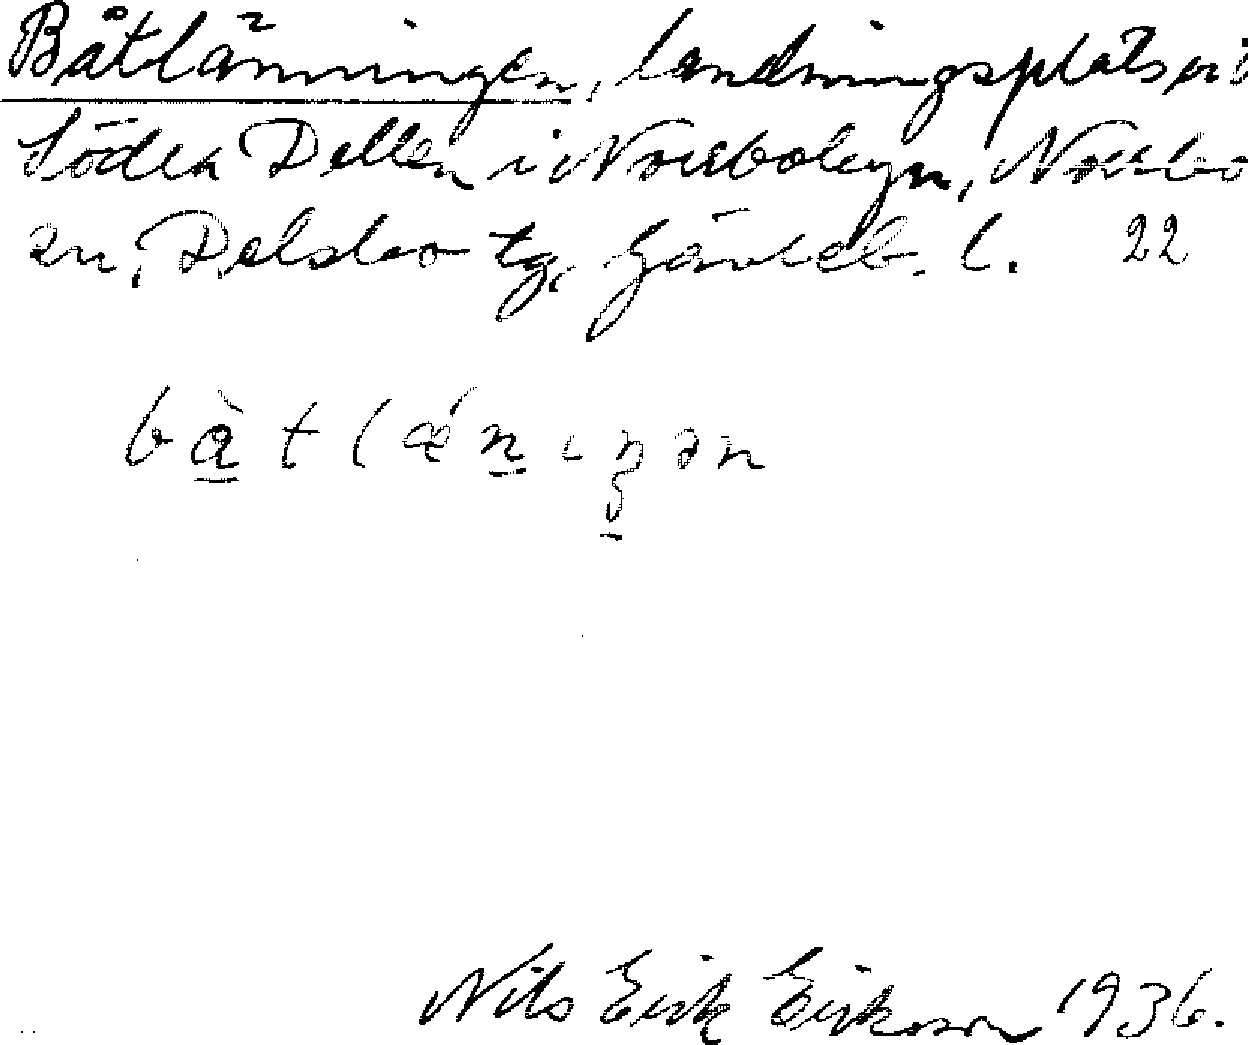 Båtlänningen, landningsplats vid
Söder Dellen i Norrbobyn, Norrbo
sn, Delsbo tg, Gävleb. l. 22
bàtlǽnıŋən
Nils Erik Erikson 1936.